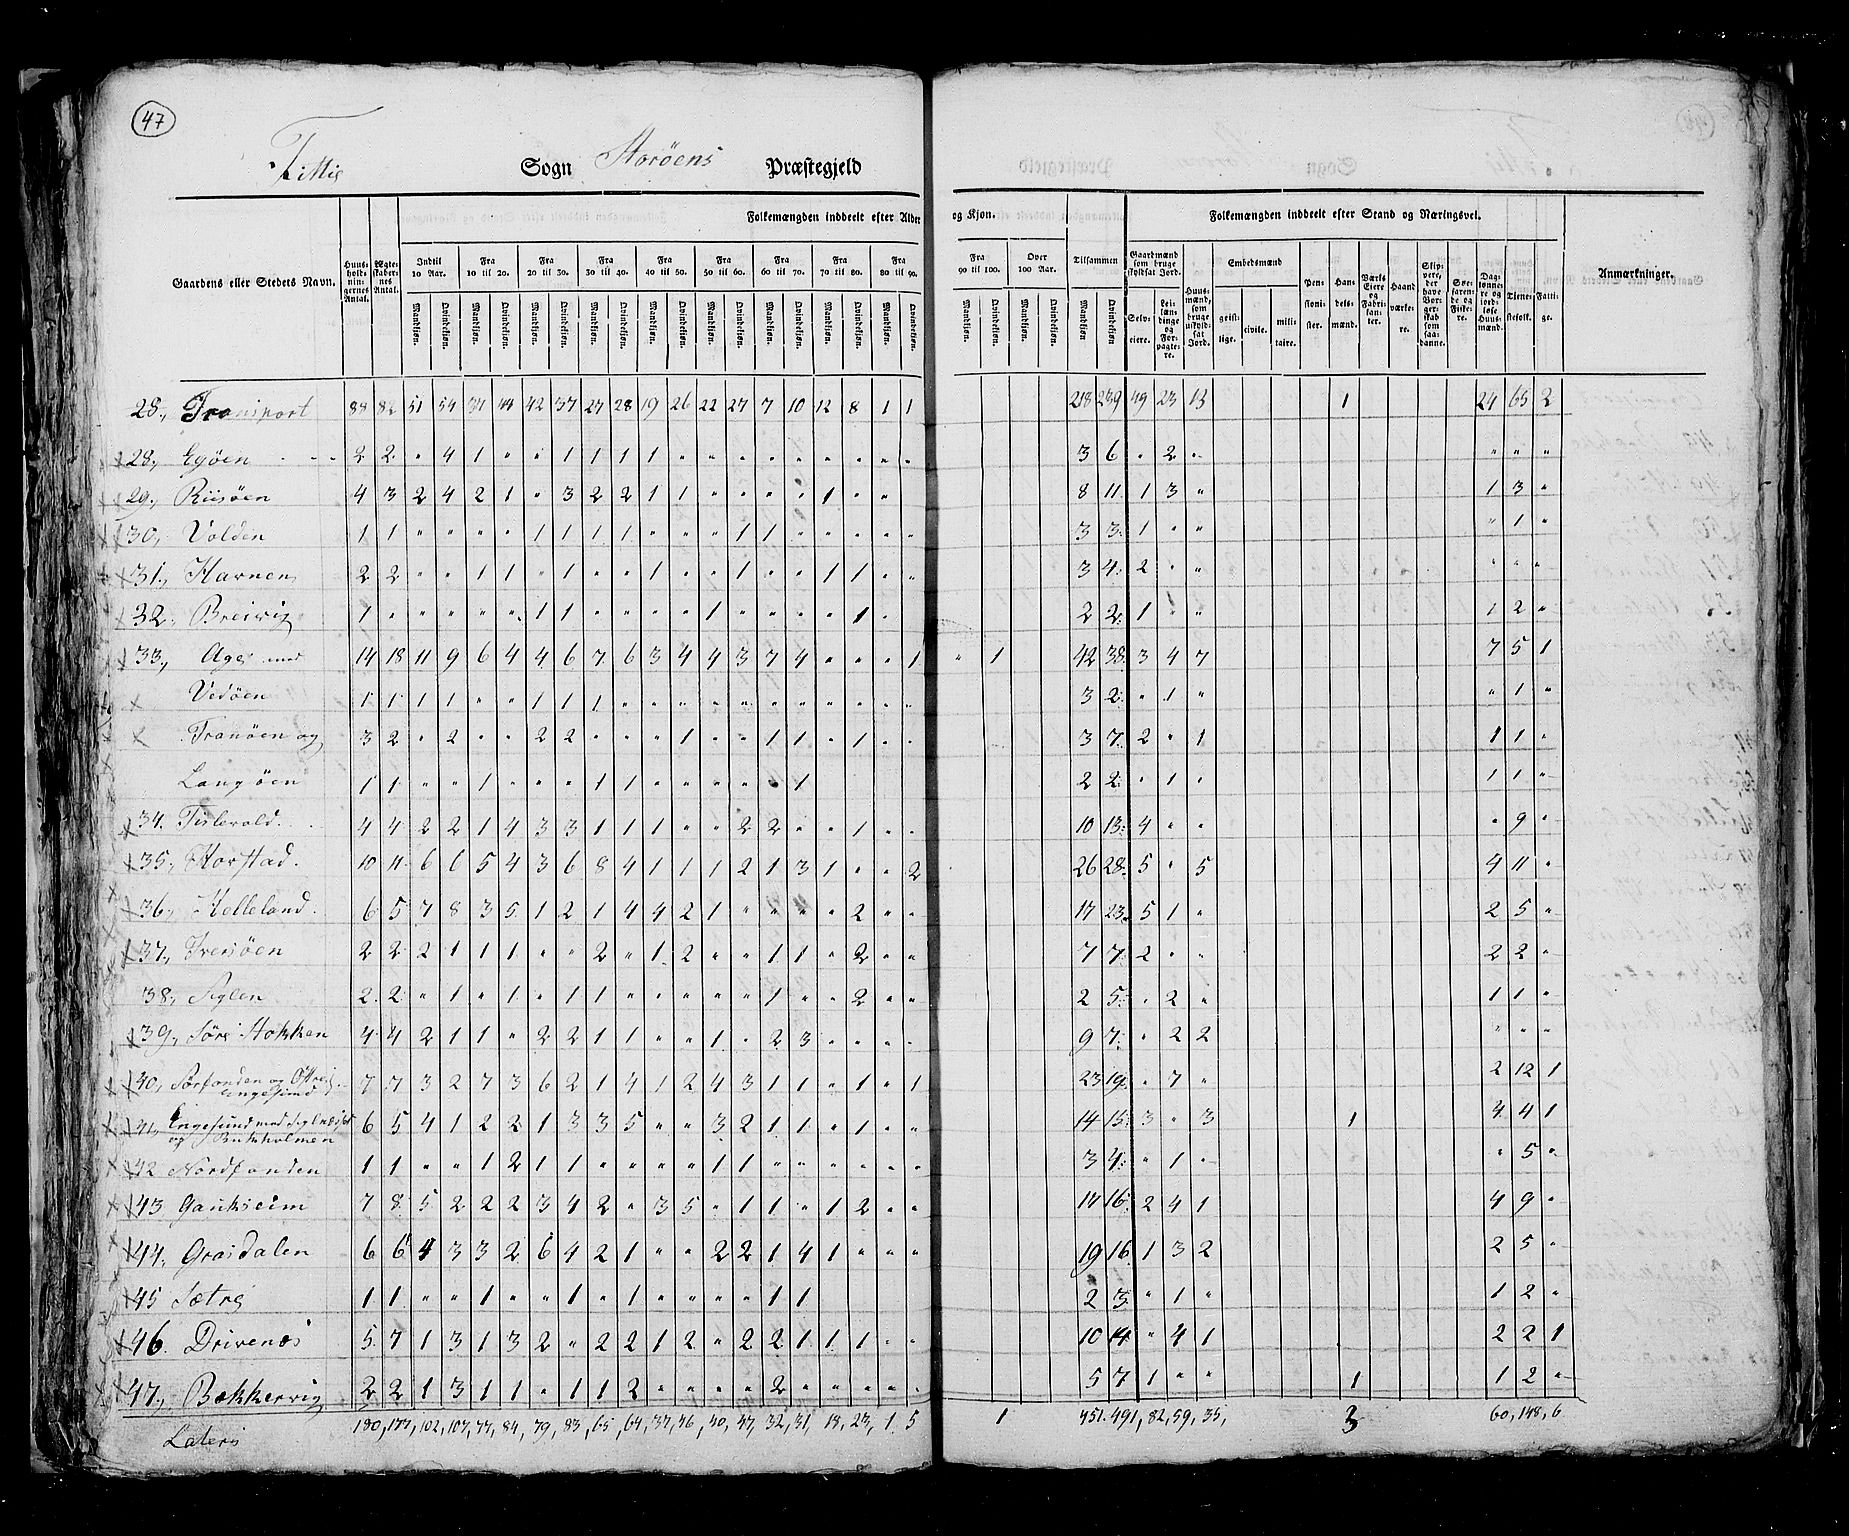 47
Fittie Sogn Storöens Præstegjeld
Folkemængden inddeelt efter Alder og Kjøn. Folkemængden inddeelt efter Stand og Næringsvei.
Gaardens eller Stedets Navn. Huus-holdningernes Antal. Ægteskabernes Antal. Indtil 10 Aar. Fra 10 til 20. Fra 20 til 30. Fra 30 til 40. Fra 40 til 50. Fra 50 til 60. Fra 60 til 70. Fra 70 til 80. Fra 80 til 90. Fra 90 til 100. Over 100 Aar. Tilsammen Embedsmænd Anmærkninger.
Mandkjøn. Qvindekjøn.
28., Transport 88 82 51 54 31 44 42 37 27 28 19 26 22 27 7 10 12 8 1 1 218 239 49 23 13 1 24 65 2
28., Egöen 2 2 " 4 1 " " 1 1 1 1 1 " " " " " " " " 3 6 " 2 " " " "
29., Riisöen 4 3 2 4 2 1 " 3 2 2 1 1 " " " " 1 " " 8 11 1 3 " 1 3 "
30, Volden 1 1 " " " " 1 1 1 1 " " " 1 1 " " " " " 3 3 1 " " " 1 "
31., Havnen 2 2 " " 1 1 " 1 " " 1 " " 1 " " 1 1 " " 3 4 2 " " " " "
32., Breivig 1 " " " " " 1 1 " " " " 1 " " " " 1 " 2 2 1 " " 1 2 "
33., Age med 14 18 11 9 6 4 4 6 7 6 3 4 4 3 7 4 " " " 1 " 1 42 38 3 4 7 7 5 1
Vedöen 1 1 1 1 " " 1 1 1 " " " " " " " " " " " 3 2 " 1 " " 1 "
Tranöen og 3 2 " 2 " " 2 2 " " " 1 " " 1 1 " 1 " " 3 7 2 " 1 1 1 "
Langöen 1 1 " " 1 " " " 1 1 " " " " " 1 2 2 " 1 " 1 1 "
34. Tislevold. 4 4 2 2 1 4 3 3 1 1 1 " " 2 2 " " 1 " " 10 13 4 " " " 9 "
35., Korstad. 10 11 6 6 5 4 3 6 8 4 1 1 1 2 1 3 1 " " 2 26 28 5 " 5 4 11 "
36., Kelleland. 6 5 7 8 3 5 1 2 1 4 4 2 1 " " " " 2 " " 17 23 5 1 " 2 5 "
37., Iversöen 2 2 2 1 1 1 " " 2 " 1 2 " " 1 1 " 2 " " 7 7 2 " " 2 2 "
38., Siglen 2 2 " 1 " 1 " 1 1 " " " " " 1 " " 2 " " 2 5 " 2 " 1 1 "
39., Söre Stokken 4 4 2 1 1 " 2 2 1 1 " " 1 " 2 3 " " " " 9 7 " 2 2 " " "
40, Sörfonden og Östre Engesund 7 7 3 2 7 3 6 2 1 4 1 2 4 3 1 1 " 1 " 1 23 19 " 7 " 2 12 1
41, Engesund med
og Bukholmen 6 5 4 1 2 2 1 3 3 5 " " 3 2 1 1 " 1 " " 14 15 3 " 3 1 4 4 1
42 Nordfonden 1 1 " " 1 2 1 1 " " " " 1 1 " " " " " " 3 4 " 1 " " 5 "
43 Gaukseim 7 8 5 2 2 2 3 4 2 " 3 5 " 1 1 " 1 2 " " 17 16 2 4 1 4 9 "
44., Grasdalen 6 6 4 3 3 2 6 4 2 1 " " 2 2 1 4 1 " " " 19 16 1 3 2 2 5 "
45 Sætre 1 1 " " 1 " " 1 " 1 " " " " 1 1 2 3 " 1 " 1 2 "
46. Drivenæs 5 7 1 3 1 3 2 " 2 2 1 2 " 2 2 1 1 1 " " 10 14 " 4 1 2 2 1
47., Bekkervig 2 2 1 3 1 1 " 1 1 2 " " " " 2 " " " " " 5 7 1 " " 1 1 2 "
Lateris 180, 177, 102, 107, 77, 84, 79, 83, 65, 64, 37, 46, 40, 47, 32, 31, 13, 23, 1 5 1 451. 491, 82, 59, 35, 3 60, 148, 6